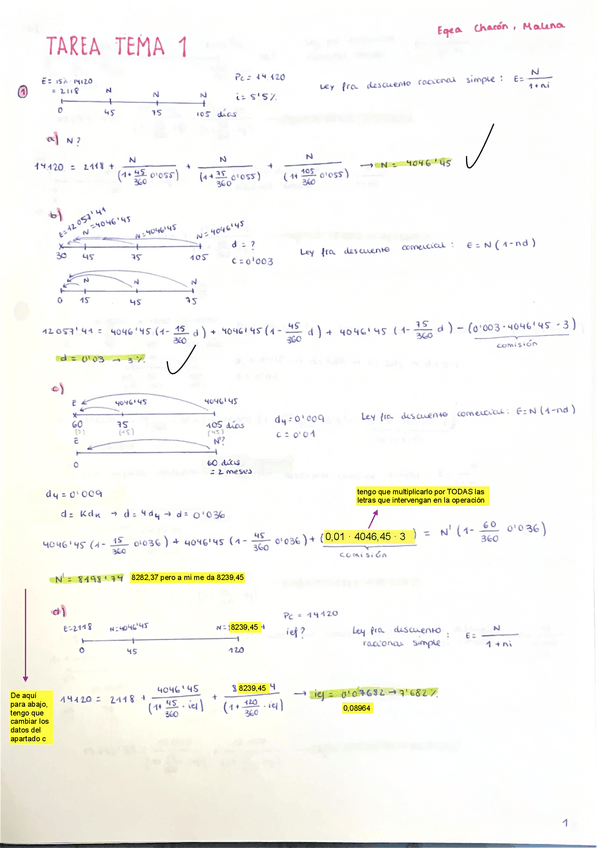 Egea Chacón, Malena
TAREA TEMA 1
① E = 15% 14120 = 2118 N N N Pc = 14120 Ley fra descuento racional simple: E = N / 1+ni
0 45 75 105 días i = 5'5%
a) N?
14120 = 2118 + N / (1 + 45/360 0'055) + N / (1 + 75/360 0'055) + N / (1 + 105/360 0'055) → N = 4046'45
b)
E = 12057'41 N = 4046'45 N = 4046'45 N = 4046'45
30 45 75 105 d = ? c = 0'003 Ley fra descuento comercial: E = N (1-nd)
N N N
0 15 45 75
12057'41 = 4046'45 (1 - 15/360 d) + 4046'45 (1 - 45/360 d) + 4046'45 (1 - 75/360 d) - (0'003 · 4046'45 · 3)
comisión
d = 0'03 → 3%
c)
E 4046'45 4046'45
60 75 105 días d4 = 0'009 Ley fra descuento comercial: E = N (1-nd)
(15) (45) c = 0'01
E N'?
0 60 días = 2 meses
d4 = 0'009
d = Kdk → d = 4d4 → d = 0'036
tengo que multiplicarlo por TODAS las letras que intervengan en la operación
4046'45 (1 - 15/360 0'036) + 4046'45 (1 - 45/360 0'036) + (0,01 · 4046,45 · 3) = N' (1 - 60/360 0'036)
comisión
N' = 8198'74 8282,37 pero a mi me da 8239,45
d)
E = 2118 N = 4046'45 N = 8239,45 Pc = 14120
ief? Ley fra descuento racional simple: E = N / 1+ni
0 45 120
De aquí para abajo, tengo que cambiar los datos del apartado c
14120 = 2118 + 4046'45 / (1 + 45/360 · ief) + 8239,45 / (1 + 120/360 · ief) → ief = 0'07682 → 7'682%
0,08964
1